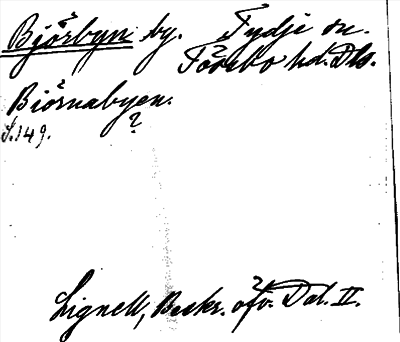 Björbyn by. Tydje sn.
Tössbo hd. Dls.
Biörnabyen.
S. 149. ?
Lignell, Beskr. öfv. Dal. II.